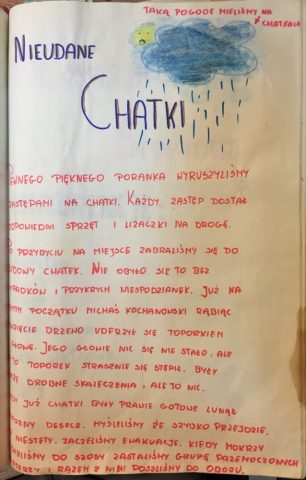 TAKĄ POGODĘ MIELIŚMY NA
CHATKACH
NIEUDANE
CHATKI
PEWNEGO PIĘKNEGO PORANKA WYRUSZYLIŚMY
ZASTĘPAMI NA CHATKI. KAŻDY ZASTĘP DOSTAŁ
ODPOWIEDNI SPRZĘT I LIZACZKI NA DROGĘ.
PO PRZYBYCIU NA MIEJSCE ZABRALIŚMY SIĘ DO
BUDOWY CHATEK. NIE OBYŁO SIĘ TO BEZ
WYPADKÓW I PRZYKRYCH NIESPODZIANEK. JUŻ NA
SAMYM POCZĄTKU MICHAŚ KOCHANOWSKI RĄBIĄC
DRZEWO UDERZYŁ SIĘ TOPORKIEM
GŁOWĘ. JEGO GŁOWIE NIC SIĘ NIE STAŁO, ALE
TO TOPOREK STRASZNIE SIĘ STĘPIŁ. BYŁY
DROBNE SKALECZENIA, ALE TO NIC.
GDY JUŻ CHATKI BYŁY PRAWIE GOTOWE LUNĄŁ
DESZCZ. MYŚLELIŚMY ŻE SZYBKO PRZEJDZIE,
NIESTETY. ZACZĘLIŚMY EWAKUACJĘ. KIEDY MOKRZY
DO SZOSY ZASTALIŚMY GRUPĘ PRZEMOCZONYCH
I RAZEM Z NIMI POSZLIŚMY DO OBOZU.